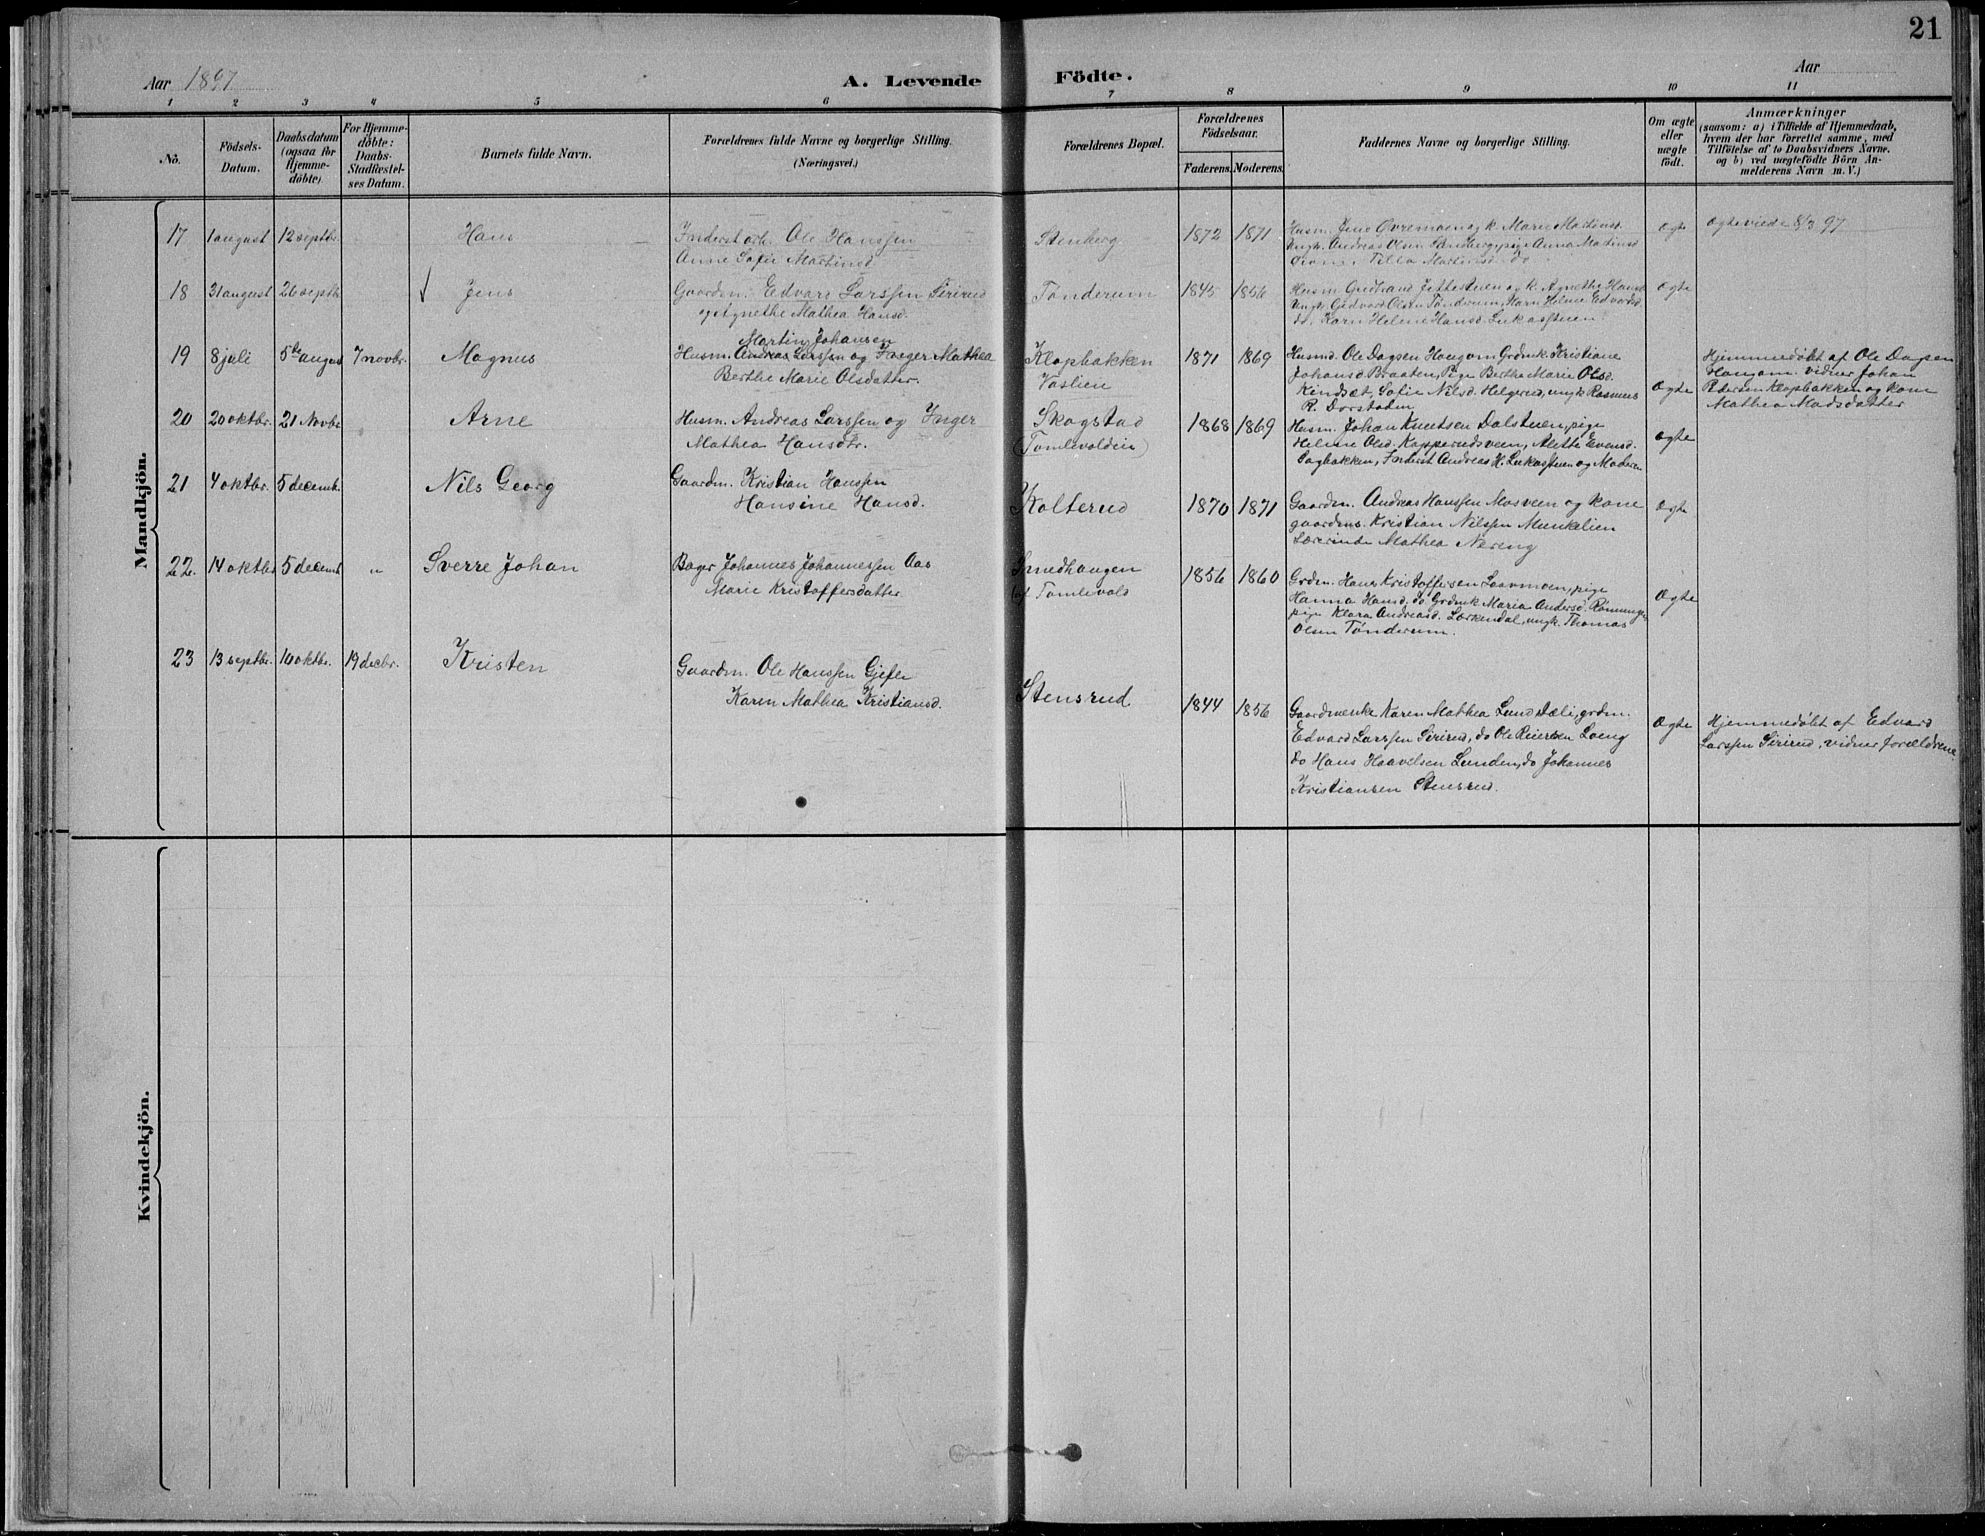 21
Aar 1897
A. Levende Födte.
Aar
1 2 3 4 5 6 7 8 9 10 11
No.
Födsels-
Datum.
Daabsdatum
(ogsaa for
Hjemme-
döbte)
For Hjemme-
döbte:
Daabs-
Stadfæstel-
ses Datum.
Barnets fulde Navn.
Forældrenes fulde Navne og borgerlige Stilling.
(Næringsvei.)
Forældrenes Bopæl.
Forældrenes
Födselsaar.
Faderens. Moderens.
Faddernes Navne og borgerlige Stilling.
Om ægte
eller
uægte
födt.
Anmærkninger
(saasom: a) i Tilfælde af Hjemmedaab,
hvem der har forrettet samme, med
Tilföielse af to Daabsvidners Navne,
og b) ved uægtefödte Börn An-
melderens Navn m. V.)
Mandkjön.
17 1 august 12 septbr. Hans
Inderst arb. Ole Hanssen
Anne Sofie Martinsd.
Stenberg
1872 1871
Husm. Jens Øvremoen og k. Marie Martinsd.
Ungk. Andreas Olsen Stenberg, pige Anna Martinsd
Tilla Martinsd. do
Ægte
Ægteviede 8/3 97
18 31 august 26 septb. Jens
Gaardm. Edvard Larssen Sirirud
og Agnethe Mathea Hansd.
Tønderum
1845 1856
Husm. Gudbrand Jettestuen og k. Agnethe Hansd
Ungk. Gedvard Olsen Tønderum, Karn Helene Edvardsd
do. Karn Helene Hansd. Lukasstuen
Ægte
19 8 juli 5te august 7 novbr. Magnus
Martin Johansen
Husm. Andreas Larssen og Inger Mathea
Berthe Marie Olsdatter.
Klopbakken
Vaslien
1871 1869
Husmd. Ole Dagsen Haugom Grdmk. Kristiane
Johansd Braaten, Pige Berthe Marie Olsd.
Kindsæt, Sofie Nilsd. Helgerud, ungk Rasmus
R. Dorstaden
Ægte
Hjemmedøbt af Ole Dagsen
Haugom. vidner Johan
Pedersen Klopbakken og kone
Mathea Madsdatter
20 20 oktbr. 21 Novbr Arne
Husm. Andreas Larssen og Inger
Mathea Hansdtr.
Skogstad
(Tomlevoldeie)
1868 1869
Husm. Johan Knutsen Dalstuen, pige
Helene Olsd. Kopperudsveen, Alette Evensd.
Bagbakken, Inderst Andreas H. Lukasstuen og Moderen
Ægte
21 4 oktbr. 5 decemb. Nils Georg
Gaardm. Kristian Hanssen
Hansine Hansd.
Kolterud
1870 1871
Gaardm. Andreas Hanssen Mosveen og kone
gaardms. Kristian Nilssen Munkelien
Lærerinde Mathea Nering
Ægte
22. 14 oktbr 5 decemb " Sverre Johan
Bager Johannes Johannessen Aas
Marie Kristoffersdatter
Smedhaugen
(af Tomlevold
1856 1860
Grdm. Hans Kristoffersen Laavmoen, pige
Hanna Hansd. do Grdmk Maria Andersd. Rønningen
pige Klara Andreasd. Lærkendal, ungk. Thomas
Olsen Tønderum.
Ægte
23 13 septbr. 10 oktbr. 19 decbr. Kristen
Gaardm. Ole Hanssen Gjefle
Karen Mathea Kristiansd.
Stensrud
1844 1856
Gaardmenke Karen Mathea Lund Dæli, grdm.
Edvard Larssen Sirirud, do Ole Reiersen Loeng
do Hans Haavelsen Lunden, do Johannes
Kristiansen Stensrud.
Ægte
Hjemmedøbt af Edvard
Larssen Sirirud, vidner forældrene
Kvindekjön.